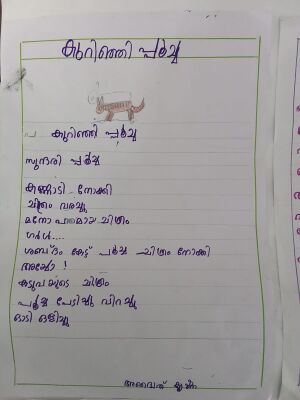 കുറിഞ്ഞി പൂച്ച
കുറിഞ്ഞി പൂച്ച
സുന്ദരി പൂച്ച
കണ്ണാടി നോക്കി
ചിത്രം വരച്ചു
മനോഹരമായ ചിത്രം
ഗർർ....
ശബ്ദം കേട്ട് പൂച്ച ചിത്രം നോക്കി
അയ്യോ !
കടുവയുടെ ചിത്രം
പൂച്ച പേടിച്ചു വിറച്ചു
ഓടി ഒളിച്ചു